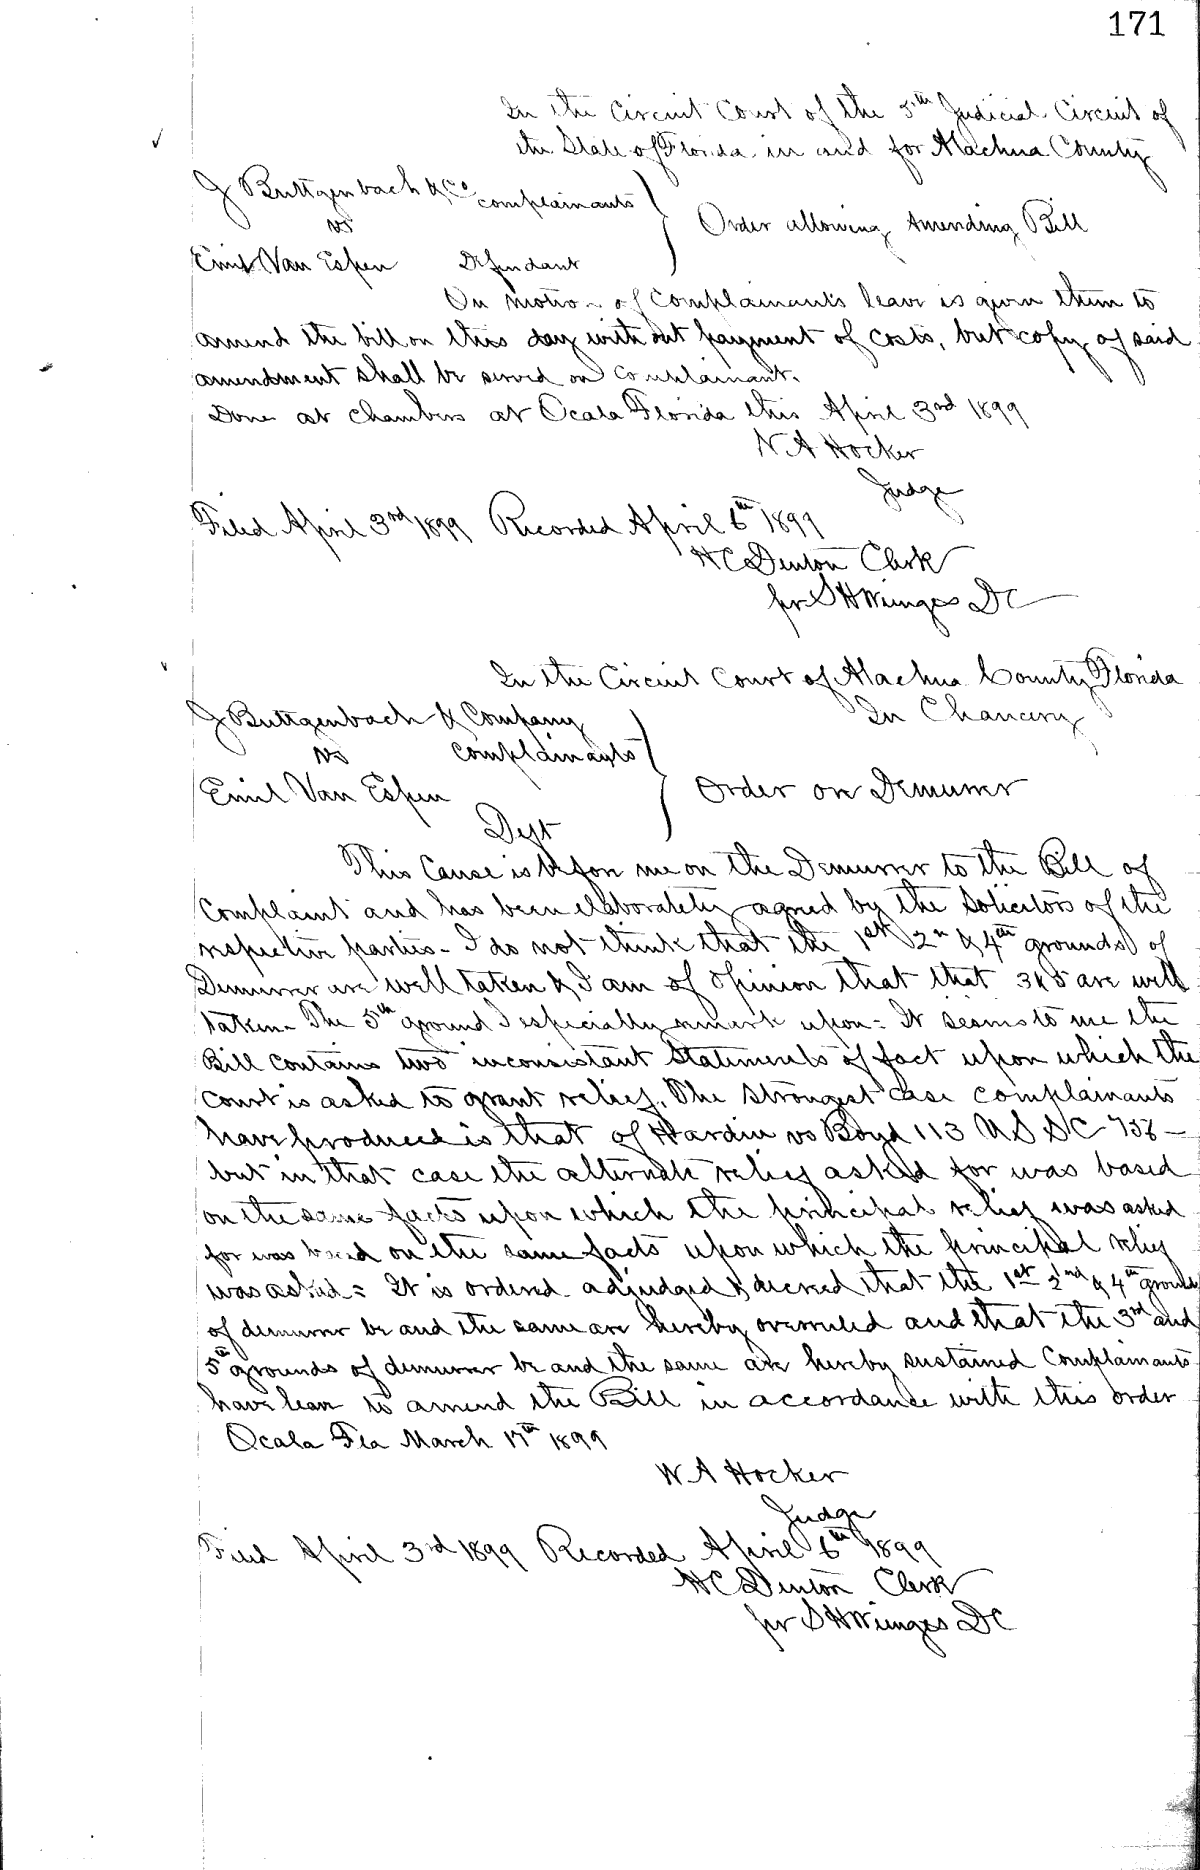 171
In the Circuit Court of the 5th Judicial Circuit of
the State of Florida in and for Alachua County
J Buttgenbach & Co complainants
vs
Order allowing Amending Bill
Emil Van Espen Defendant
On motion of Complainants leave is given them to
amend the bill on this day without payment of costs, but copy of said
amendment shall be served on Complainant.
Done at chambers at Ocala Florida this April 3rd 1899
W A Hocker
Judge
Filed April 3rd 1899 Recorded April 6th 1899
H C Denton Clerk
per S H Wienges DC
In the Circuit Court of Alachua County Florida
In Chancery
J Buttgenbach & Company
vs complainants
Emil Van Espen
Order on Demurrer
Deft
This Cause is before me on the Demurrer to the Bill of
Complaint and has been elaborately agreed by the Solicitors of the
respective parties - I do not think that the 1st 2n & 4th grounds of
Demurrer are well taken & I am of opinion that that 3 & 5 are well
taken - The 5th ground I especially remark upon = It seems to me the
Bill contains two inconsistant statements of fact upon which the
court is asked to grant relief. The strongest case complainants
have produced is that of Hardin vs Boyd 113 U S S C 756 -
but in that case the alternate relief asked for was based
on the same facts upon which the principal relief was asked
for was based on the same facts upon which the principal relief
was asked = It is ordered adjudged & decreed that the 1st 2nd & 4th grounds
of demurrer be and the same are hereby overruled and that the 3rd and
5th grounds of demurrer be and the same are hereby sustained Complainants
have leave to amend the Bill in accordance with this order
Ocala Fla March 17th 1899
W A Hocker
Judge
Filed April 3rd 1899 Recorded April 6th 1899
H C Denton Clerk
per S H Wienges DC